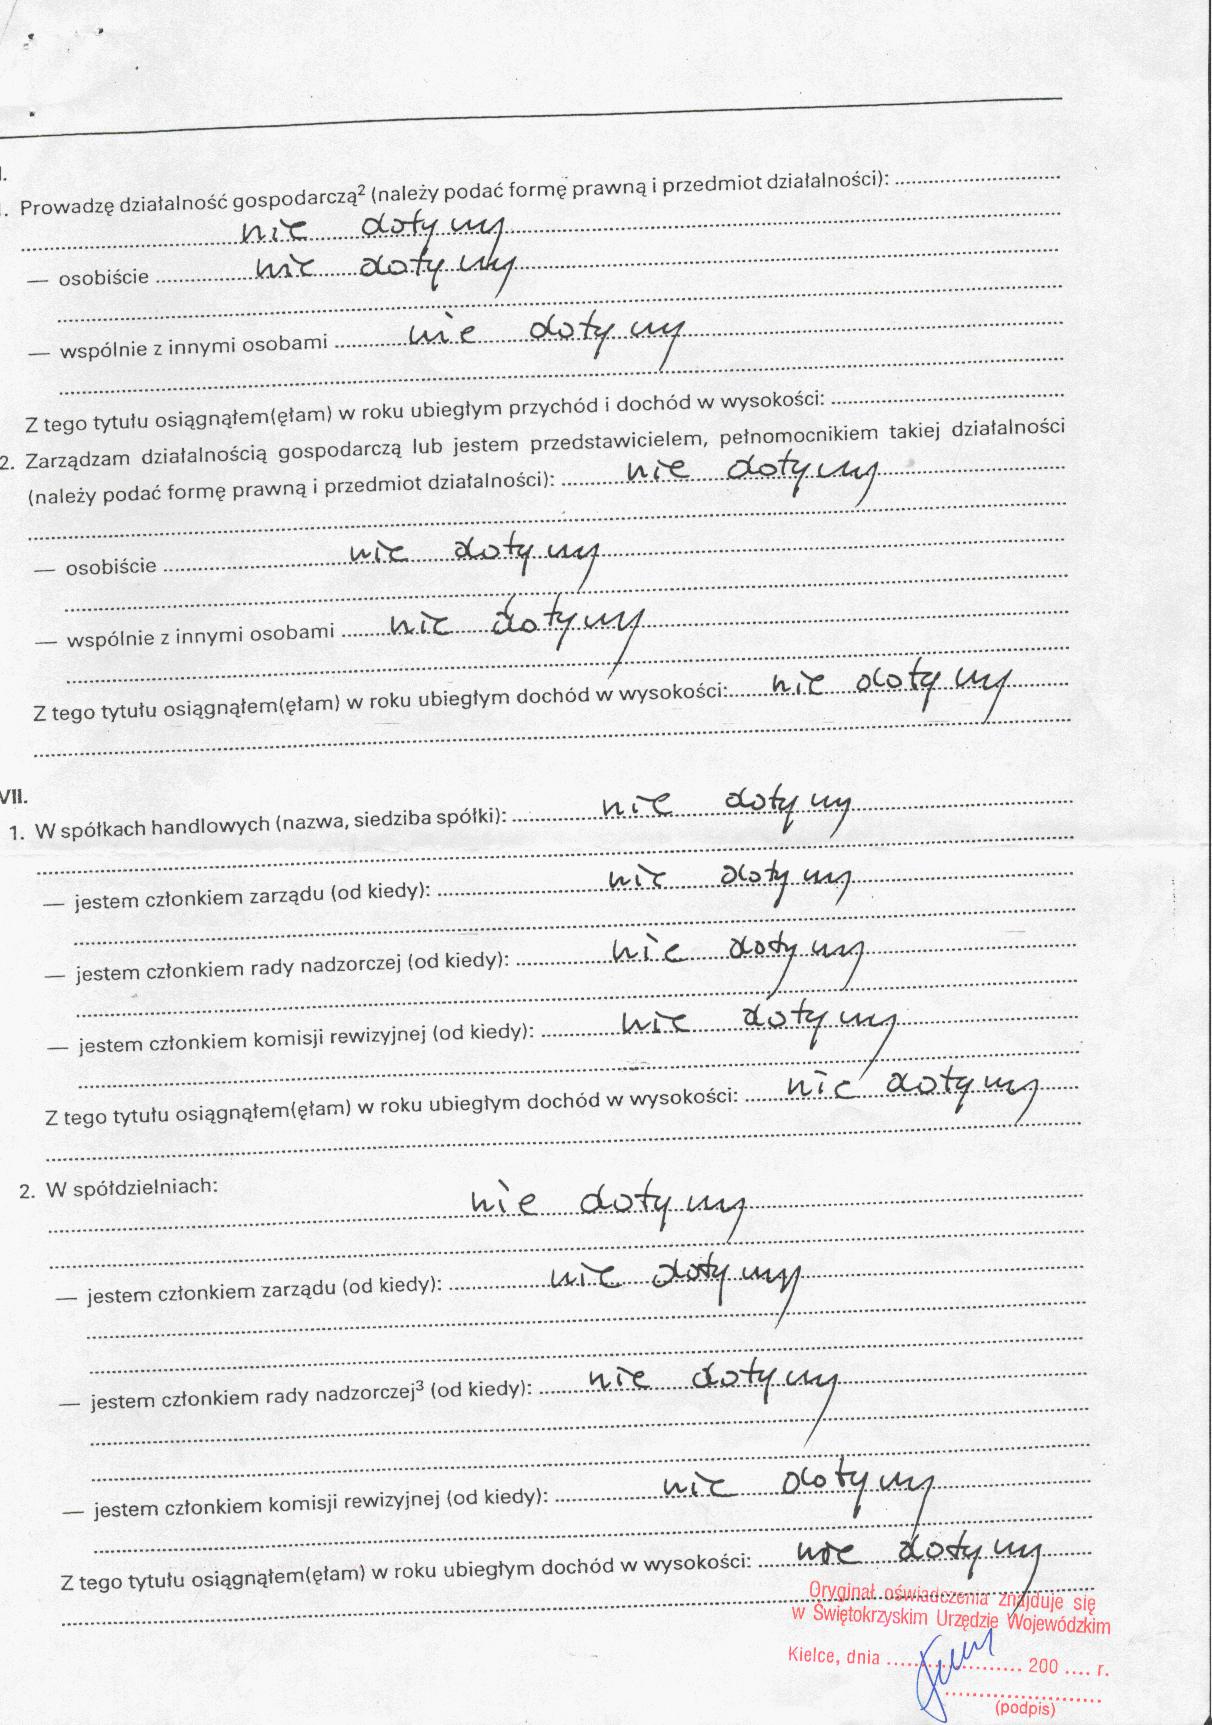 I.
. Prowadzę działalność gospodarczą² (należy podać formę prawną i przedmiot działalności): ....................
nie dotyczy
— osobiście .................... nie dotyczy
— wspólnie z innymi osobami .................... nie dotyczy
Z tego tytułu osiągnąłem(ęłam) w roku ubiegłym przychód i dochód w wysokości: ....................
2. Zarządzam działalnością gospodarczą lub jestem przedstawicielem, pełnomocnikiem takiej działalności
(należy podać formę prawną i przedmiot działalności): .................... nie dotyczy
— osobiście .................... nie dotyczy
— wspólnie z innymi osobami .................... nie dotyczy
Z tego tytułu osiągnąłem(ęłam) w roku ubiegłym dochód w wysokości: .................... nie dotyczy
VII.
1. W spółkach handlowych (nazwa, siedziba spółki): .................... nie dotyczy
— jestem członkiem zarządu (od kiedy): .................... nie dotyczy
— jestem członkiem rady nadzorczej (od kiedy): .................... nie dotyczy
— jestem członkiem komisji rewizyjnej (od kiedy): .................... nie dotyczy
Z tego tytułu osiągnąłem(ęłam) w roku ubiegłym dochód w wysokości: .................... nie dotyczy
2. W spółdzielniach:
nie dotyczy
— jestem członkiem zarządu (od kiedy): .................... nie dotyczy
— jestem członkiem rady nadzorczej³ (od kiedy): .................... nie dotyczy
— jestem członkiem komisji rewizyjnej (od kiedy): .................... nie dotyczy
Z tego tytułu osiągnąłem(ęłam) w roku ubiegłym dochód w wysokości: .................... nie dotyczy
Oryginał oświadczenia znajduje się
w Świętokrzyskim Urzędzie Wojewódzkim
Kielce, dnia .................... 200 .... r.
(podpis)